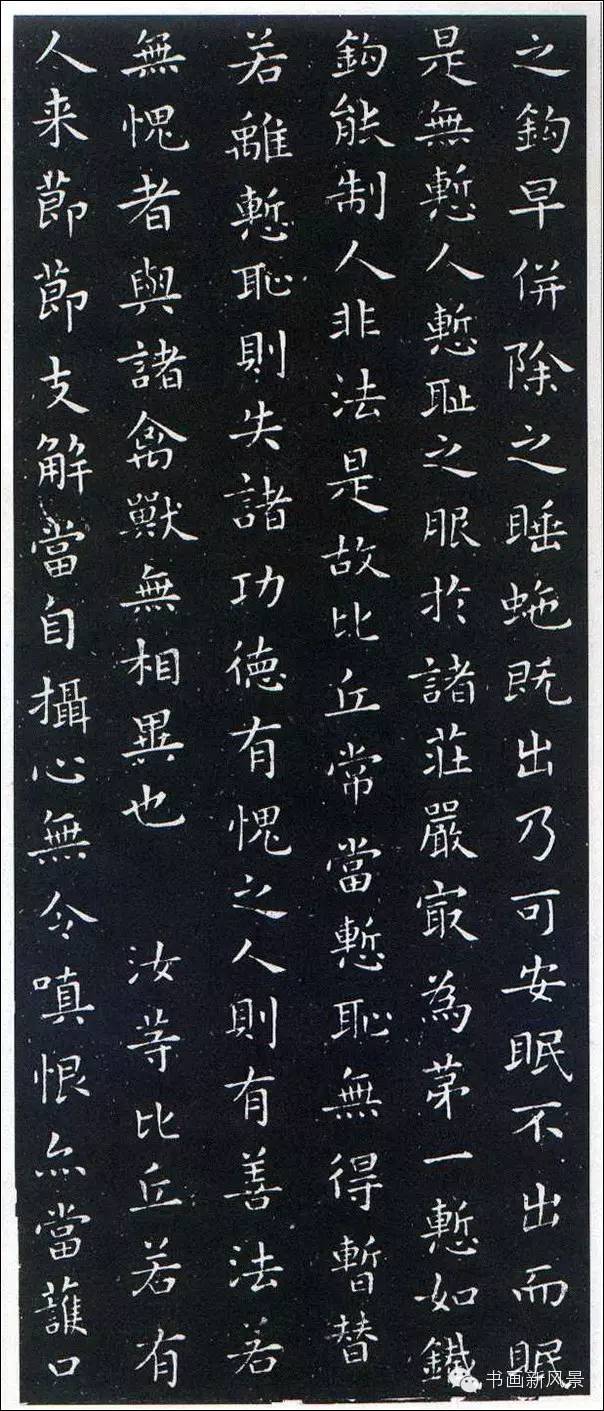 之鈎早併除之睡虵既出乃可安眠不出而眠
是無慙人慙耻之服於諸莊嚴冣為苐一慙如鐵
鈎能制人非法是故比丘常當慙恥無得暫替
若離慙恥則失諸功德有愧之人則有善法若
無愧者與諸禽獸無相異也　汝等比丘若有
人来莭莭支解當自攝心無令嗔恨亦當護口
书画新风景